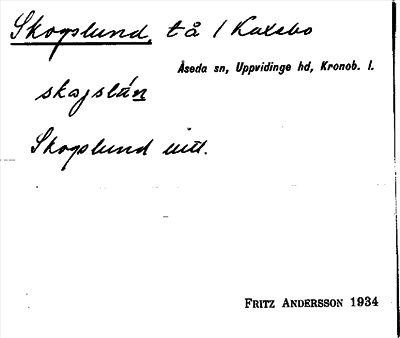 Skogslund, tå / Kaxebo
Åseda sn, Uppvidinge hd, Kronob. l.
skajslán
Skogslund uttl.
FRITZ ANDERSSON 1934